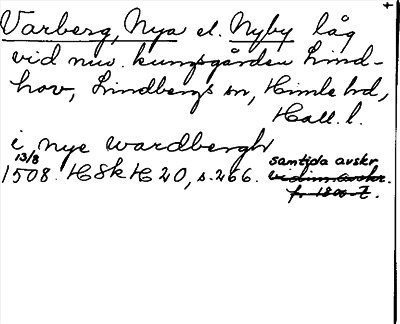 Varberg, Nya el. Nyby låg
vid nuv. kungsgården Lind-
hov, Lindbergs sn, Himle hd,
Hall. l.
i nye wardbergh
13/8 samtida avskr
1508. HSkH 20, s. 266. vidim. avskr.
fr 1800-t.